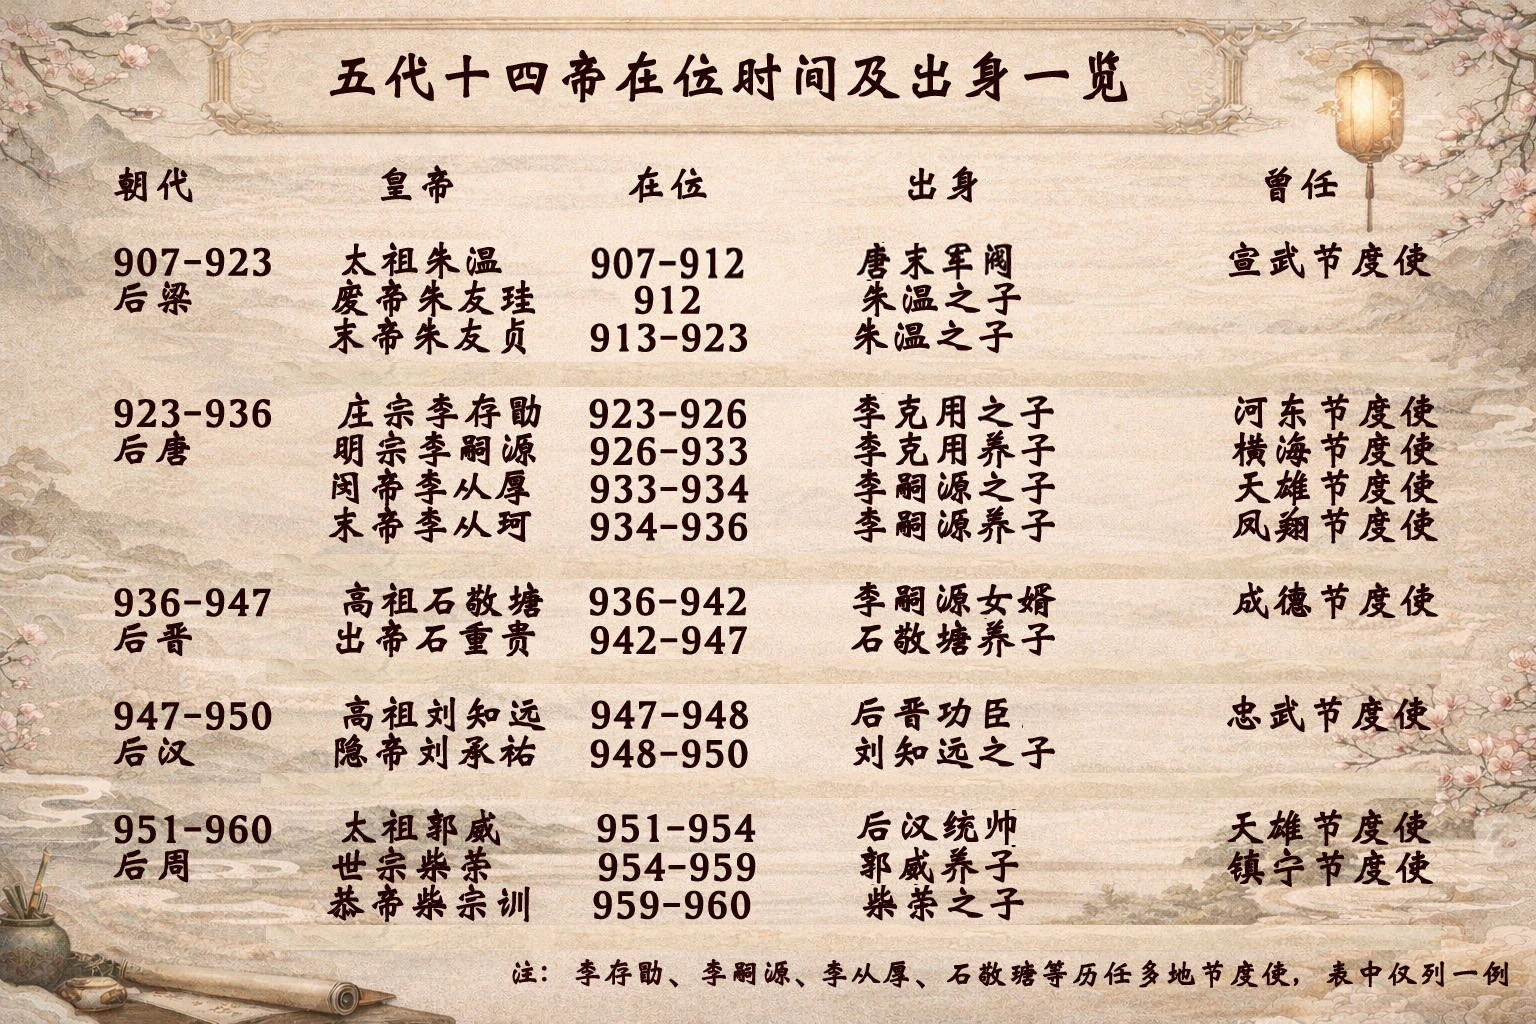 五代十四帝在位时间及出身一览
朝代 皇帝 在位 出身 曾任
907-923 太祖朱温 907-912 唐末军阀 宣武节度使
后梁 废帝朱友珪 912 朱温之子
末帝朱友贞 913-923 朱温之子
923-936 庄宗李存勖 923-926 李克用之子 河东节度使
后唐 明宗李嗣源 926-933 李克用养子 横海节度使
闵帝李从厚 933-934 李嗣源之子 天雄节度使
末帝李从珂 934-936 李嗣源养子 凤翔节度使
936-947 高祖石敬瑭 936-942 李嗣源女婿 成德节度使
后晋 出帝石重贵 942-947 石敬瑭养子
947-950 高祖刘知远 947-948 后晋功臣 忠武节度使
后汉 隐帝刘承祐 948-950 刘知远之子
951-960 太祖郭威 951-954 后汉统帅 天雄节度使
后周 世宗柴荣 954-959 郭威养子 镇宁节度使
恭帝柴宗训 959-960 柴荣之子
注：李存勖、李嗣源、李从厚、石敬瑭等历任多地节度使，表中仅列一例